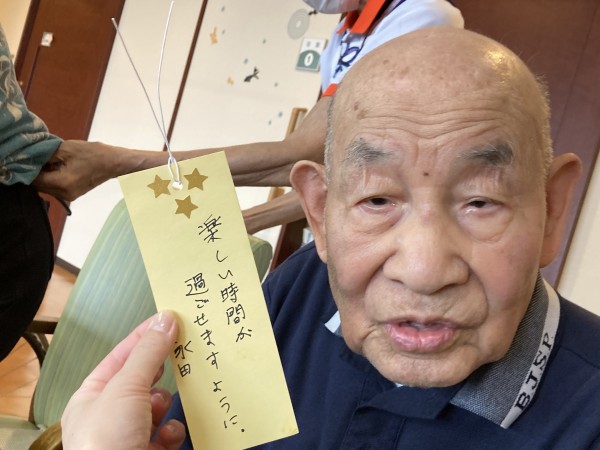 楽しい時間が
過ごせますように。
永田
BJSP
0